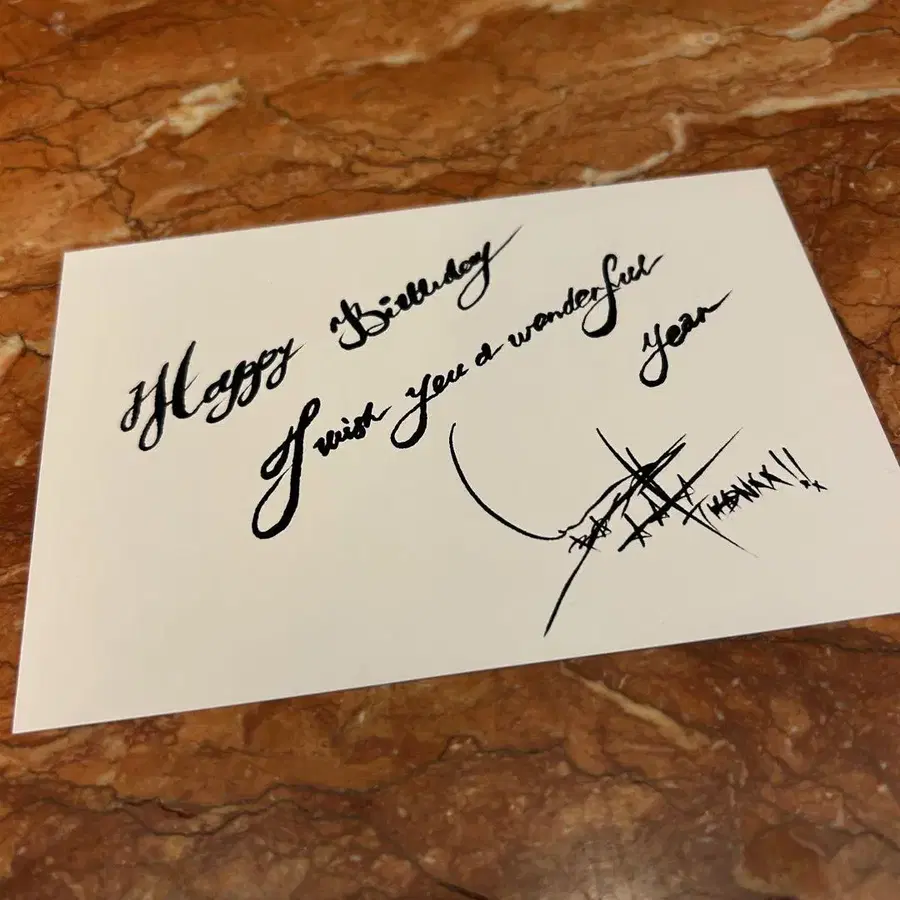 Happy Birthday
I wish you a wonderful
year
THANKX!!